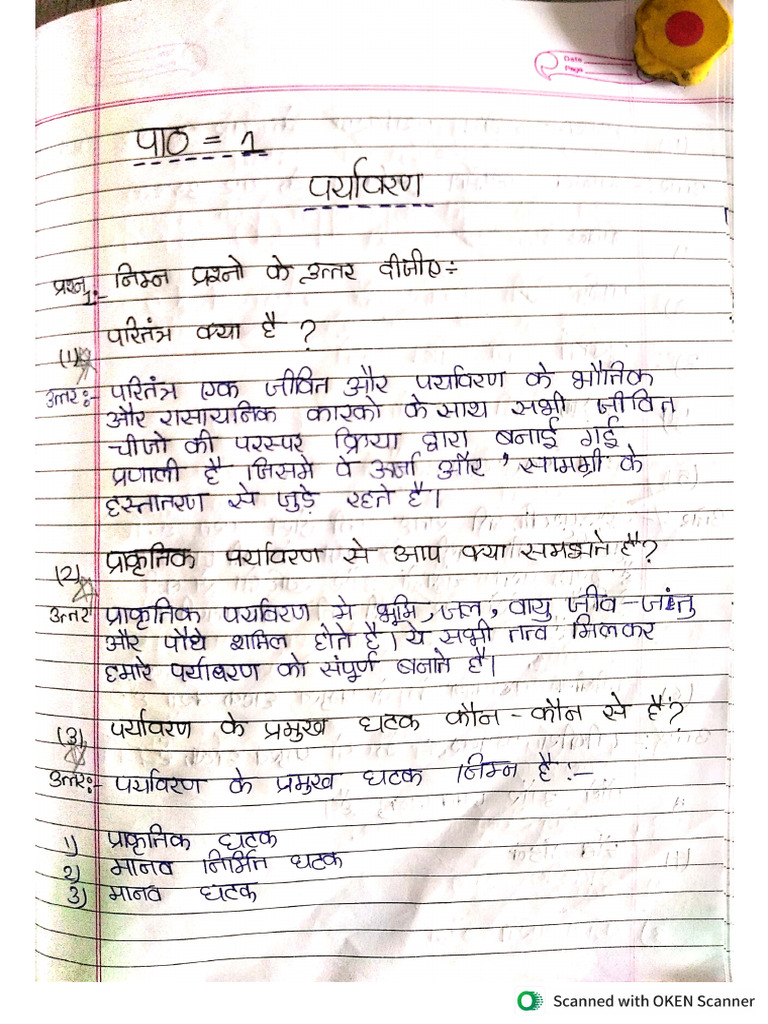 Date
Page
पाठ = 1
पर्यावरण
प्रश्न 1:- निम्न प्रश्नो के उत्तर दीजीए÷
(1) परितंत्र क्या है ?
उत्तर:- परितंत्र एक जीवित और पर्यावरण के भौतिक
और रासायनिक कारको के साथ सभी जीवित
चीजो की परस्पर क्रिया द्वारा बनाई गई
प्रणाली है जिसमे वे ऊर्जा और , सामग्री के
हस्तातरण से जुड़े रहते है।
(2) प्राकृतिक पर्यावरण से आप क्या समझते है?
उत्तर प्राकृतिक पर्यावरण मे भूमि, जल, वायु जीव-जंतु
और पौधे शामिल होते है। ये सभी तत्व मिलकर
हमारे पर्यावरण को संपूर्ण बनाते है।
(3) पर्यावरण के प्रमुख घटक कौन-कौन से है?
उत्तर:- पर्यावरण के प्रमुख घटक निम्न है:-
1) प्राकृतिक घटक
2) मानव निर्मित घटक
3) मानव घटक
Scanned with OKEN Scanner